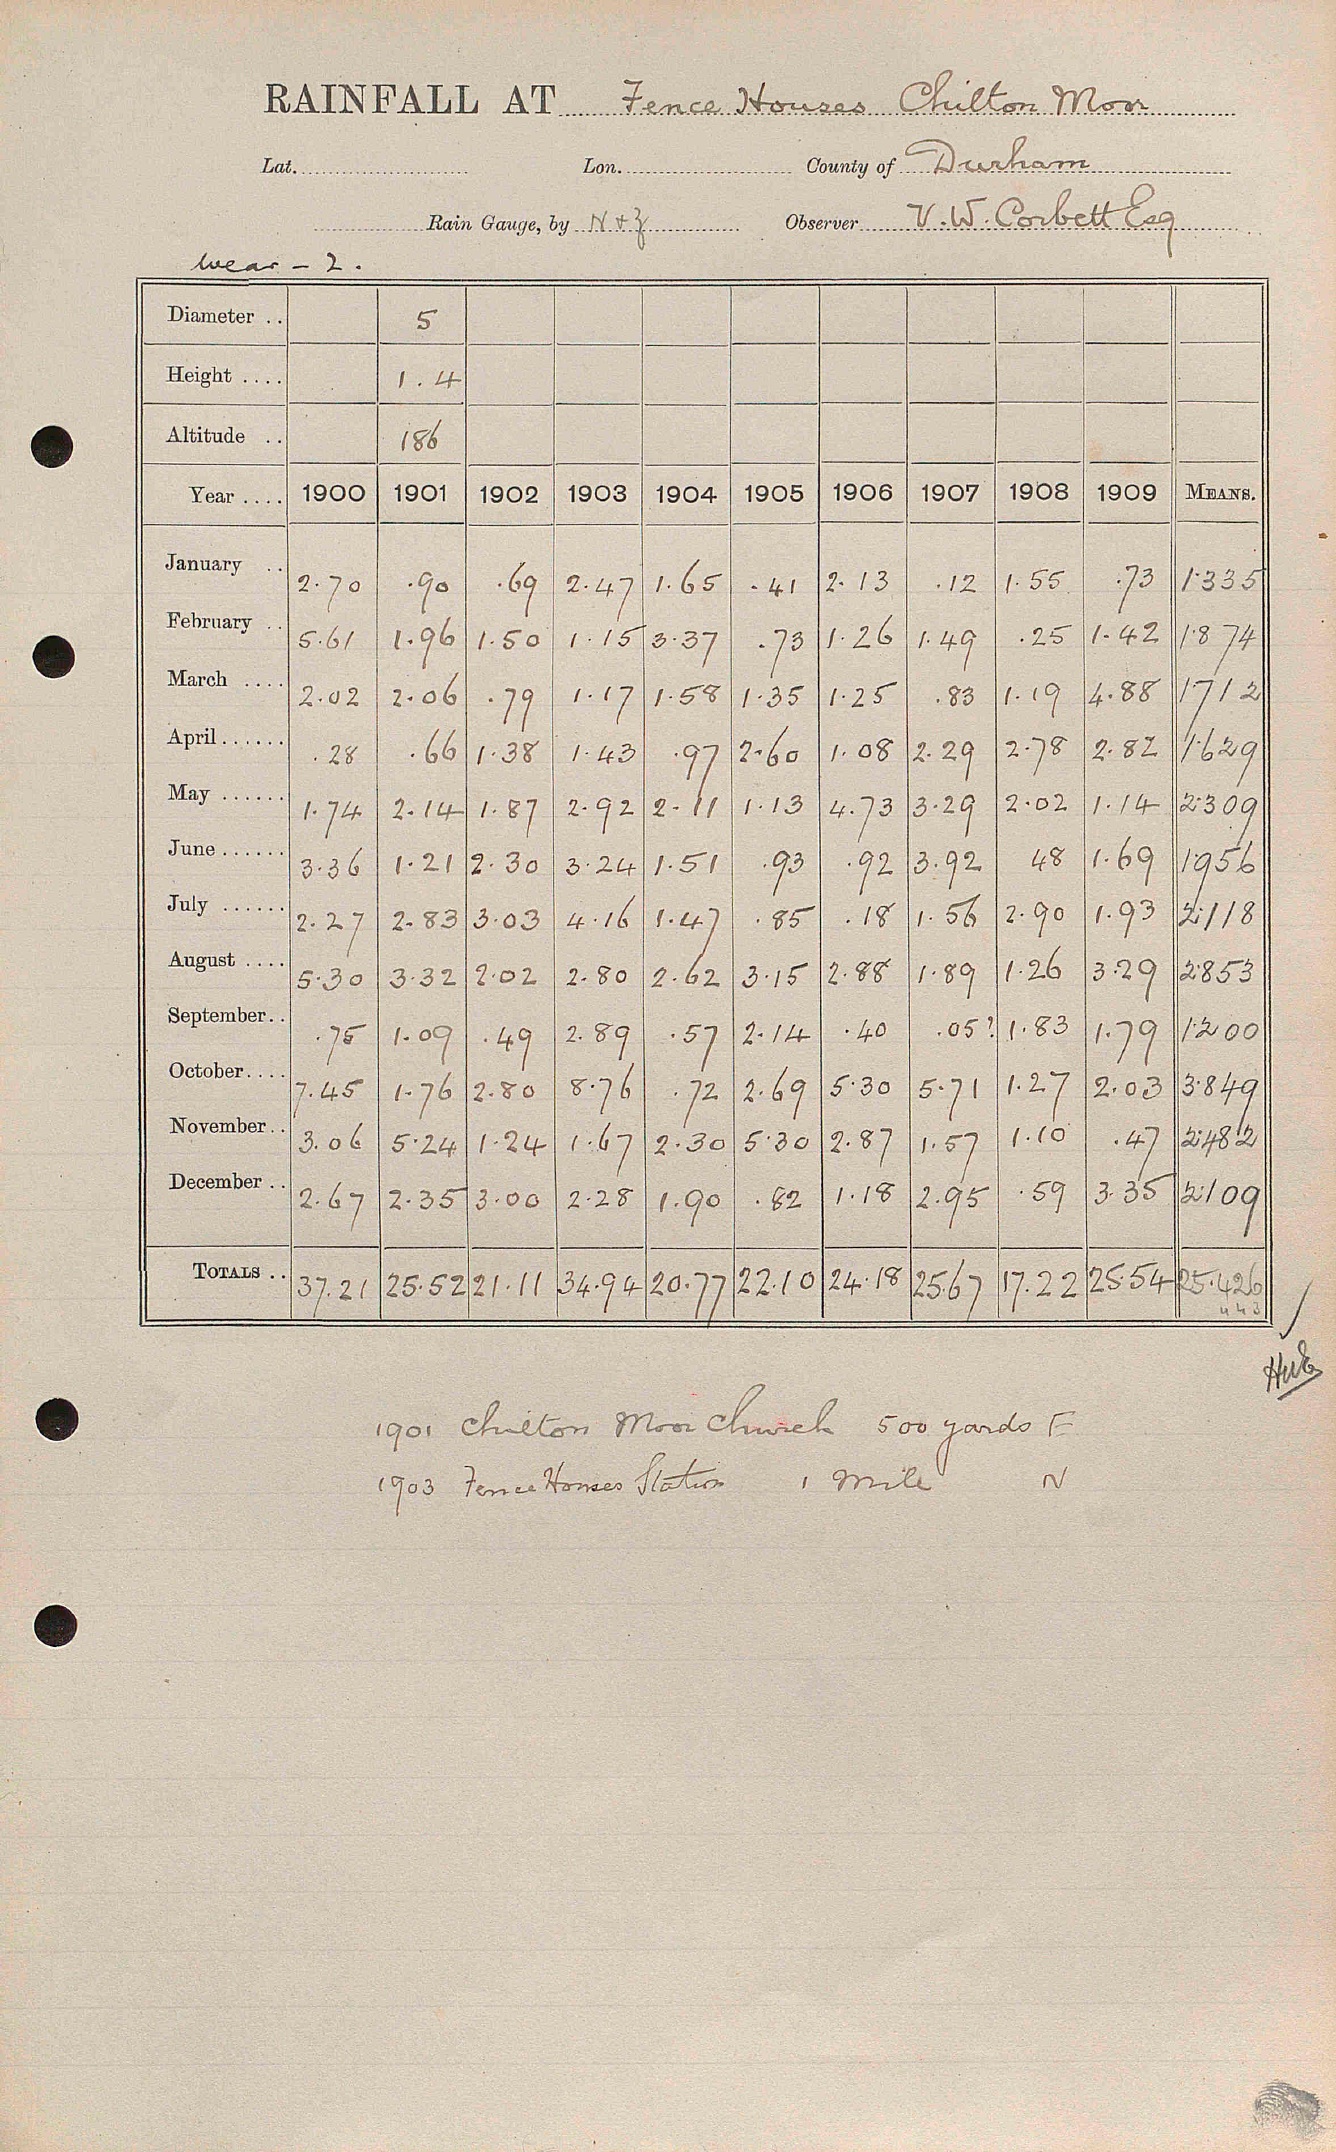 RAINFALL AT Fence Houses Chilton Moor
Lat. Lon. County of Durham
Rain Gauge, by N & Z Observer V. W. Corbett Esq
Wear – 2.
Diameter .. 5
Height .... 1.4
Altitude .. 186
Year .... 1900 1901 1902 1903 1904 1905 1906 1907 1908 1909 MEANS.
January .. 2.70 .90 .69 2.47 1.65 .41 2.13 .12 1.55 .73 1.335
February .. 5.61 1.96 1.50 1.15 3.37 .73 1.26 1.49 .25 1.42 1.874
March .... 2.02 2.06 .79 1.17 1.58 1.35 1.25 .83 1.19 4.88 1712
April ...... .28 .66 1.38 1.43 .97 2.60 1.08 2.29 2.78 2.82 1.629
May ...... 1.74 2.14 1.87 2.92 2.11 1.13 4.73 3.29 2.02 1.14 2.309
June ...... 3.36 1.21 2.30 3.24 1.51 .93 .92 3.92 48 1.69 1.956
July ...... 2.27 2.83 3.03 4.16 1.47 .85 .18 1.56 2.90 1.93 2.118
August .... 5.30 3.32 2.02 2.80 2.62 3.15 2.88 1.89 1.26 3.29 2.853
September .. .75 1.09 .49 2.89 .57 2.14 .40 .05? 1.83 1.79 1.200
October .... 7.45 1.76 2.80 8.76 .72 2.69 5.30 5.71 1.27 2.03 3.849
November .. 3.06 5.24 1.24 1.67 2.30 5.30 2.87 1.57 1.10 .47 2.482
December .. 2.67 2.35 3.00 2.28 1.90 .82 1.18 2.95 .59 3.35 2.109
TOTALS .. 37.21 25.52 21.11 34.94 20.77 22.10 24.18 25.67 17.22 25.54 25.426
1901 Chilton Moor Church 500 yards E
1903 Fence Houses Station 1 Mile N